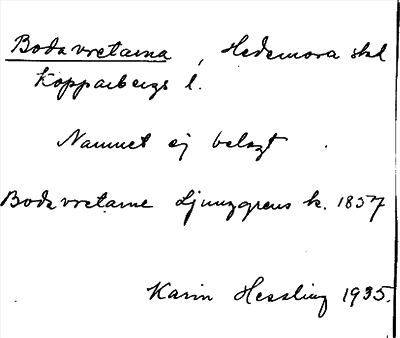 Bodavretarna, Hedemora skl
Kopparbergs l.
Namnet ej belagt.
Bodavretarne Ljunggrens k. 1857
Karin Hessling 1935.